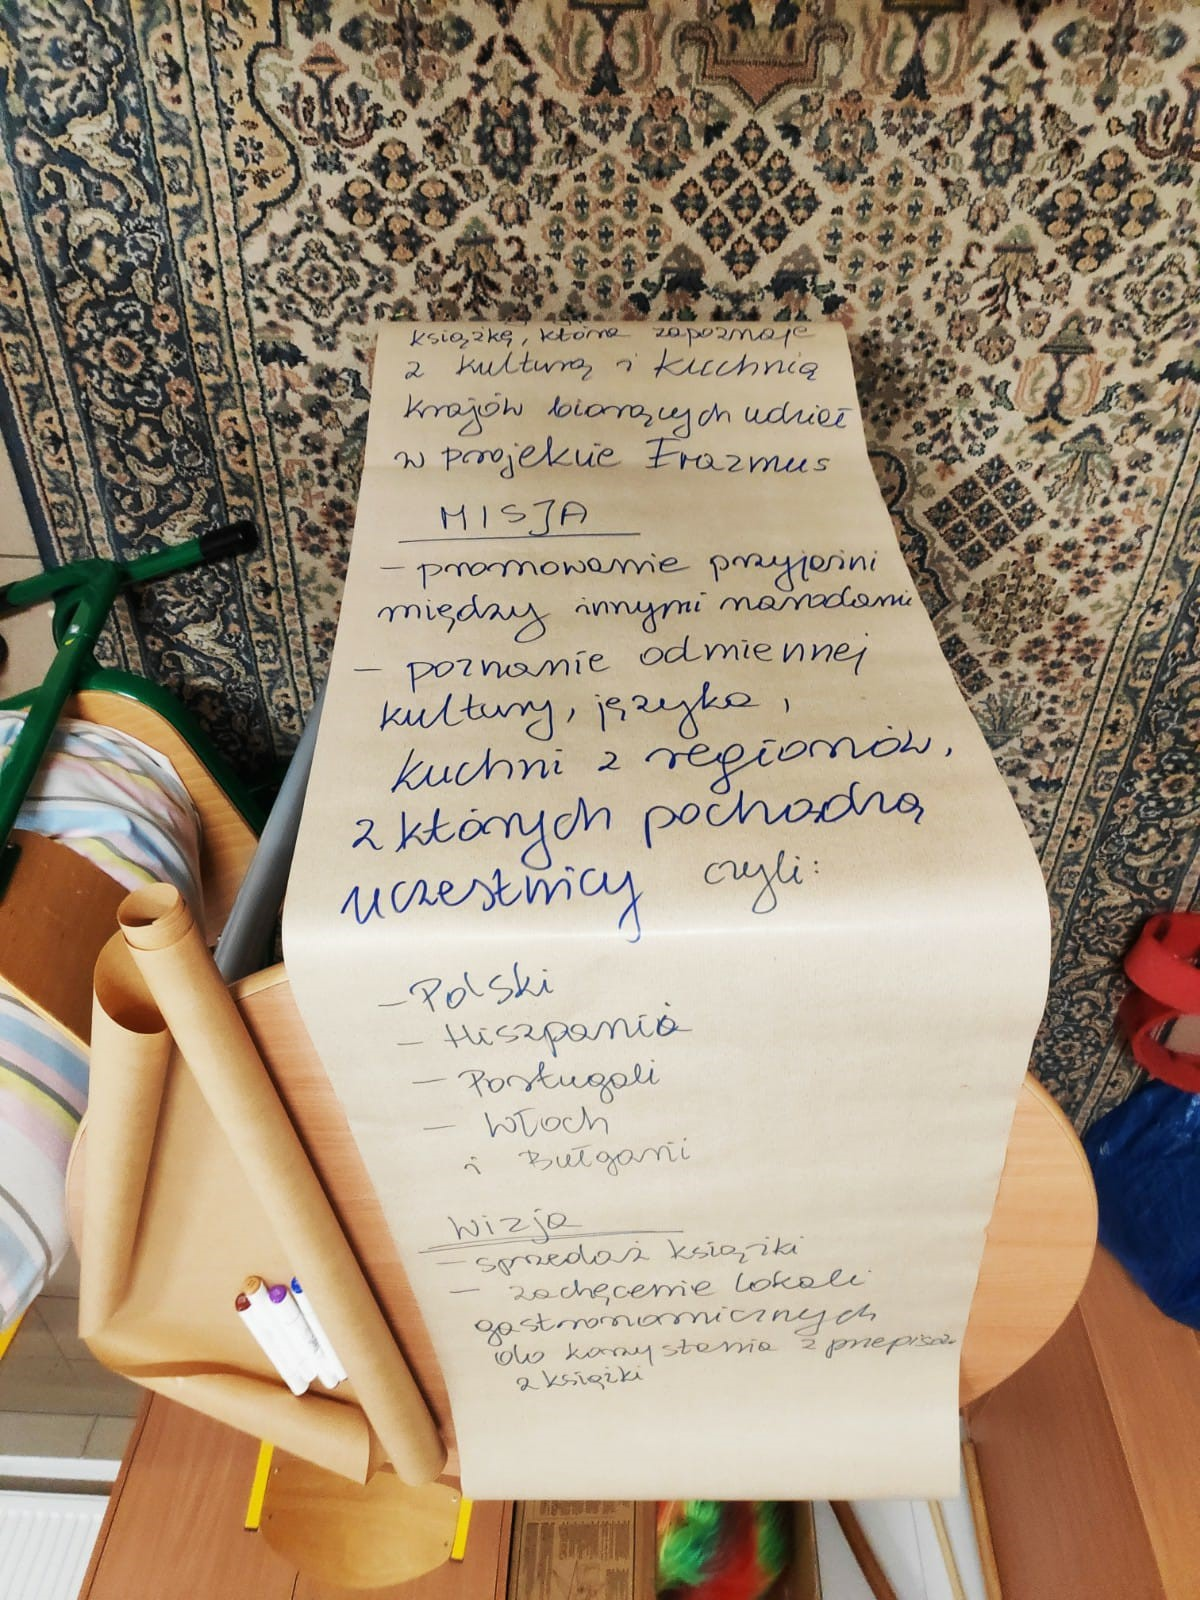 książkę, która zapoznaje
z kulturą i kuchnią
krajów biorących udział
w projekcie Erazmus
MISJA
- promowanie przyjaźni
między innymi narodami
- poznanie odmiennej
kultury, języka,
kuchni z regionów,
z których pochodzą
uczestnicy czyli:
- Polski
- Hiszpania
- Portugali
- Włoch
i Bułgarii
Wizja
- sprzedaż książki
- zachęcenie lokali
gastronomicznych
do korzystania z przepisów
z książki